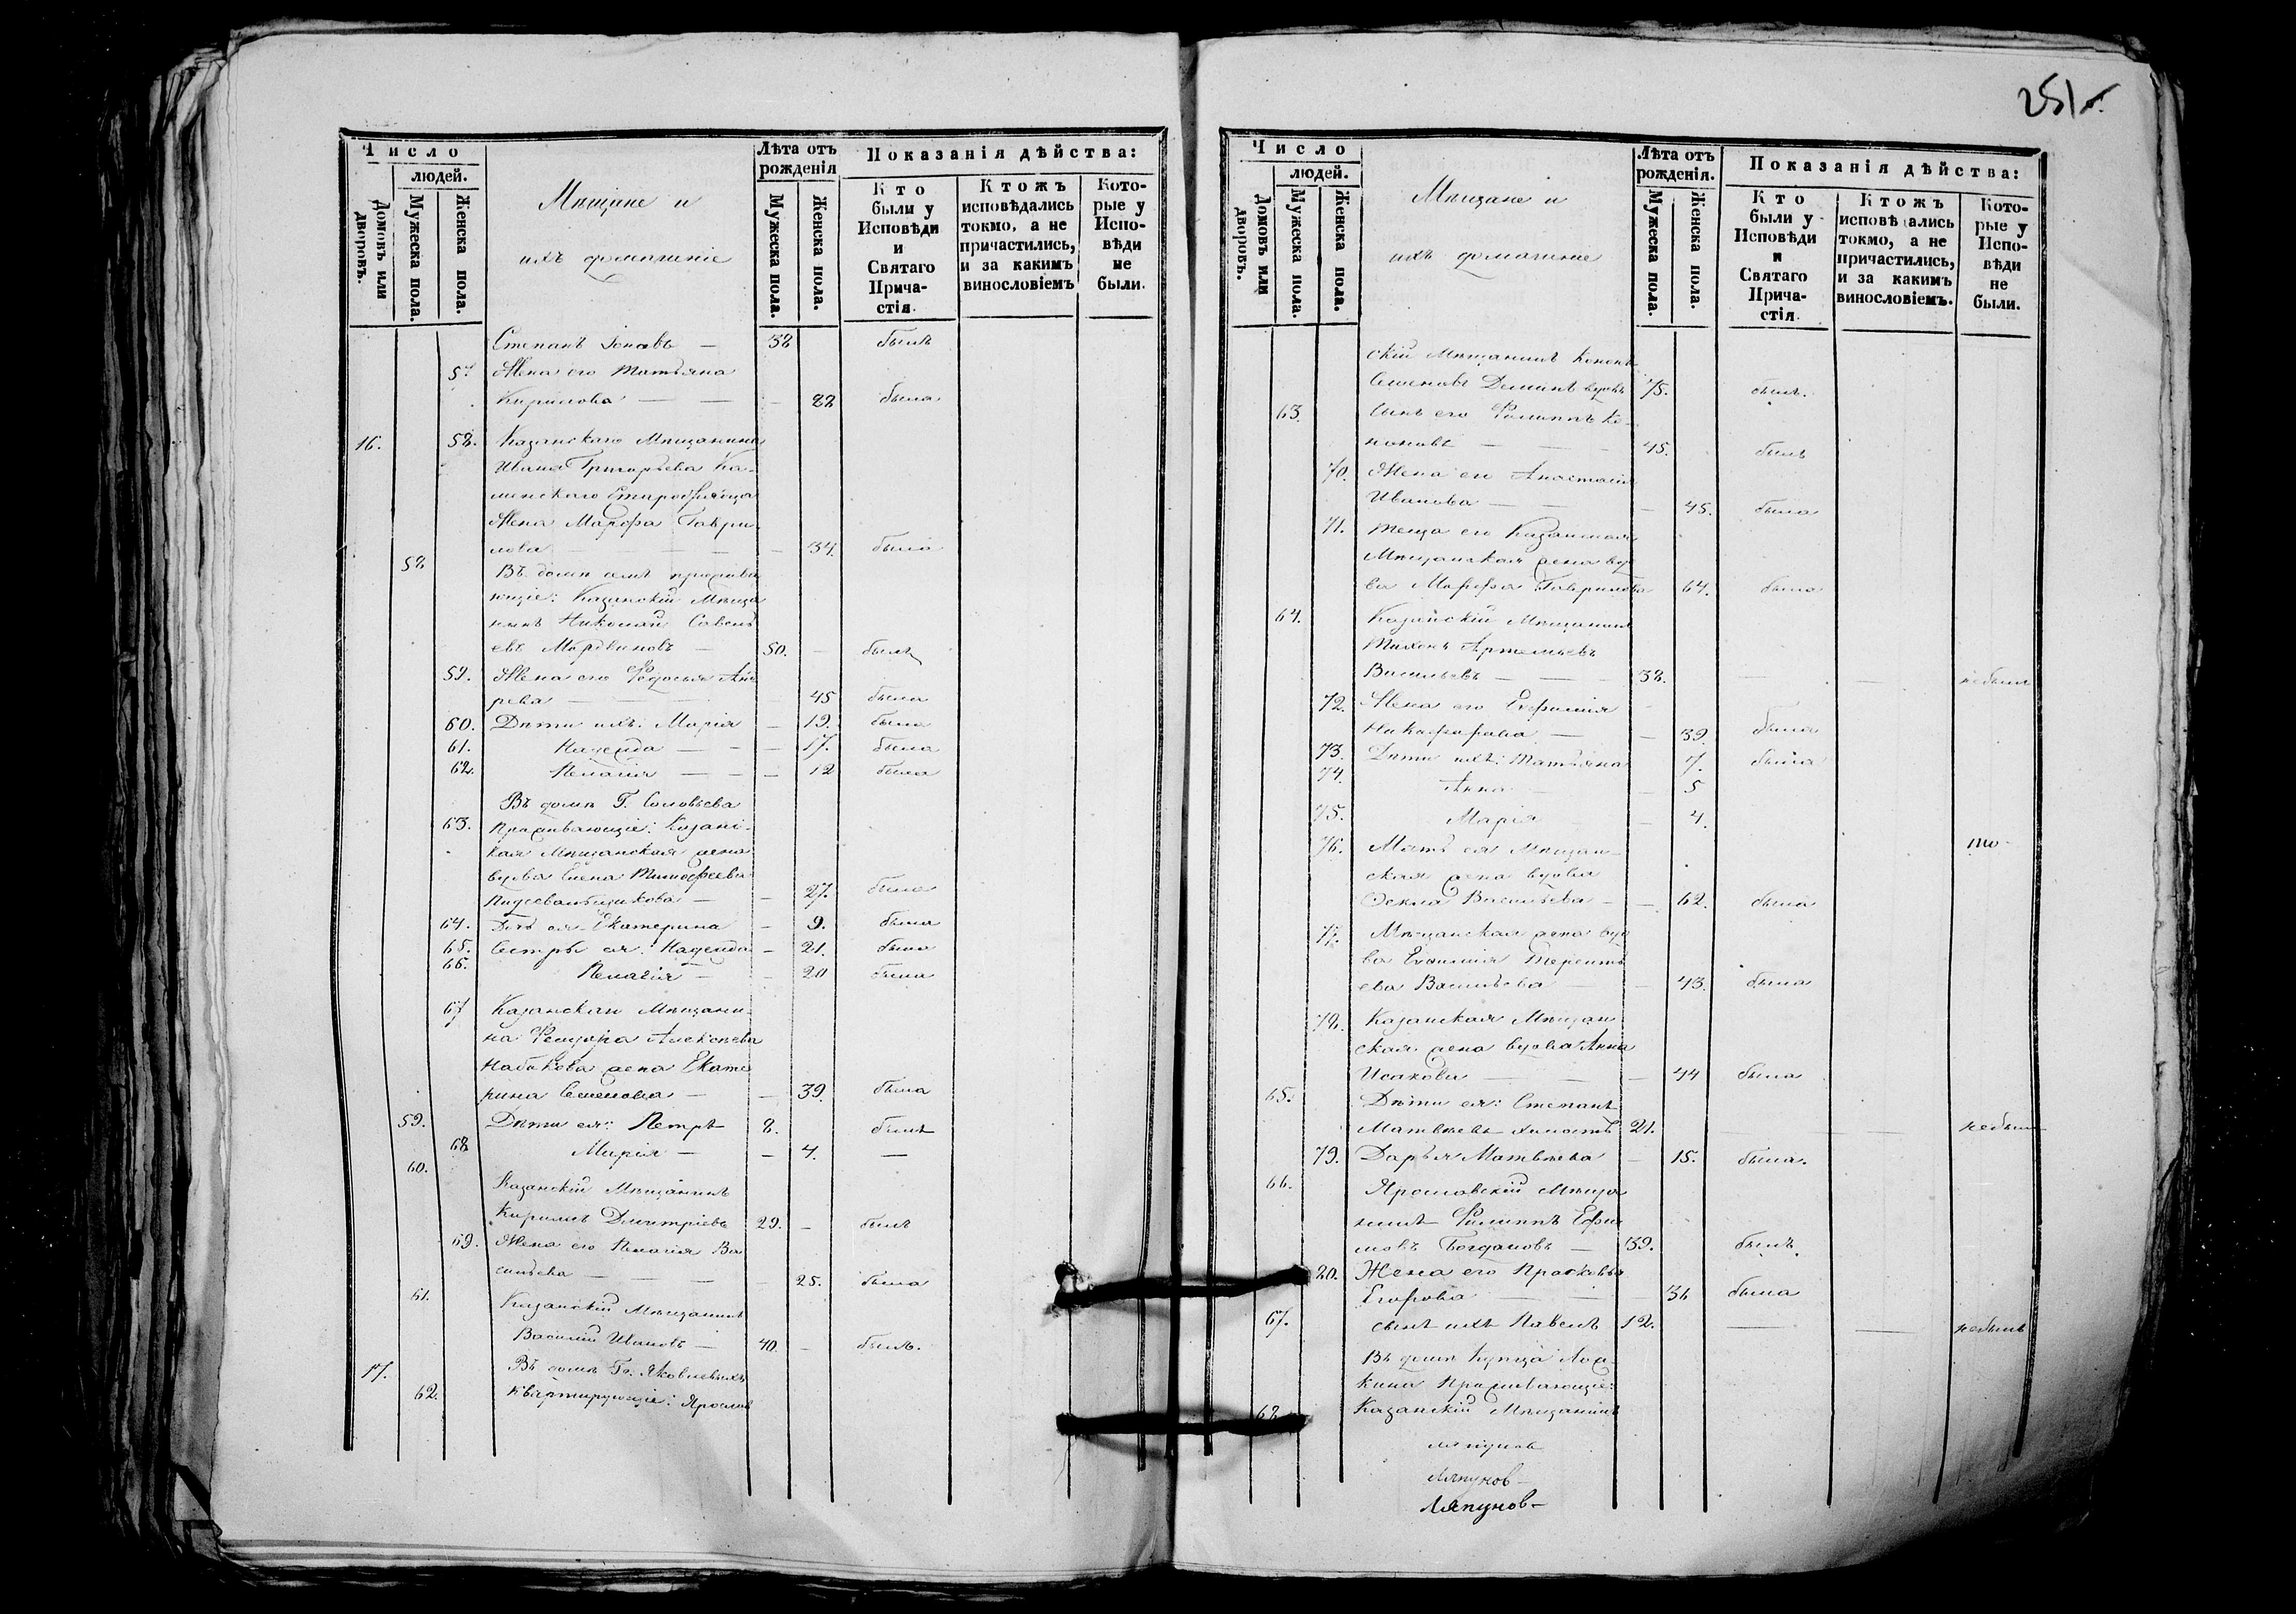 251
Число
людей.
Домовъ или дворовъ.
Мужеска пола.
Женска пола.
Мѣщане и
ихъ домашніе
Лѣта отъ рожденія
Мужеска пола.
Женска пола.
Показанія дѣйства:
Кто были у Исповѣди и Святаго Прича-стія.
Ктожъ исповѣдались токмо, а не причастились, и за какимъ винословіемъ
Кото-рые у Испо-вѣди не были.
Степанъ Іоновъ — 38 былъ
57 Жена его Татьяна
Кирилова — — — 28 была
16. 58. Казанскаго Мѣщанина
Ивана Григорьева Ка-
менскаго
Жена Марфа Гаври-
лова — — — 34. была
58 Въ домѣ семъ прожива
ющіе: Казанскій Мѣща
нинъ Николай Савель
евъ Мордвиновъ — 50. — былъ
59. Жена его Ѳедосья Анд
рева — 45 была
60. Дѣти ихъ: Марія — 19. была
61. Надежда — — — 17. была
62. Пелагія — — — 12 была
Въ домѣ Г. Соловьева
63. Проживающіе: Казанс-
кая Мѣщанская жена
вдова Елена Тимофеева
— — 27. была
64. Дочь ея Екатерина — 9. была
65. Сестры ея: Надежда — 21. была
66. Пелагія — — 20 была
67 Казанскаго Мѣщани-
на Ѳедора Алексѣева
Набокова жена Екате
рина Семенова — — 39. была
59. Дѣти ея: Петръ 8. былъ
68 Марія — — 4. —
60. Казанскій Мѣщанинъ
Кирилъ Дмитріевъ 29. — былъ
69. Жена его Пелагія Ва
сильева — — — 25. была
61. Казанскій Мѣщанинъ
Василій Ивановъ — 40. — былъ.
17. Въ домѣ Гг. Яковлевыхъ
62. Квартирующіе: Яросла
Число
людей.
Домовъ или дворовъ.
Мужеска пола.
Женска пола.
Мѣщане и
ихъ домашніе
Лѣта отъ рожденія.
Мужеска пола.
Женска пола.
Показанія дѣйства:
Кто были у Исповѣди и Святаго Прича-стія.
Ктожъ исповѣдались токмо, а не причастились, и за какимъ винословіемъ.
Кото-рые у Испо-вѣди не были.
скій Мѣщанинъ Конон
Семеновъ Деминъ вдовъ 75. былъ.
63. Сынъ его Филиппъ Ко-
ноновъ — — 45. былъ
70. Жена его Анастасія
Иванова — — — 45. была
71. Теща его Казанская
Мѣщанская жена вдо
ва Марфа Гаврилова 64. была
64. Казанскій Мѣщанинъ
Тихонъ Артемьевъ
Васильевъ — — — 38. — — небылъ
72. Жена его Евфимія
Никифорова — — 39. была
73. Дѣти ихъ: Татьяна 7. была
74. Анна — — 5
75. Марія — 4.
76. Мать ея Мѣщан-
ская жена вдова
Ѳекла Васильева — — 62. была
77. Мѣщанская жена вдо
ва Терентьева
Васильева — — 43. была
78. Казанская Мѣщан
ская жена вдова Анна
Исакова — — — 44 была
65. Дѣти ея: Степанъ
Матвѣевъ холостъ 21. — — небылъ
79. Дарья Матвѣева — 15. была.
66. Ярославскій Мѣща
нинъ Филиппъ Ефи
мовъ Богдановъ — 39. былъ.
80. Жена его Прасковья
Егорова — — — 36 была
67. сынъ ихъ Павелъ 12. — — небылъ
Въ домѣ Купца
Проживающіе:
68 Казанскій Мѣщанинъ
Ляпунов
Ляпунов-
Ляпунов-